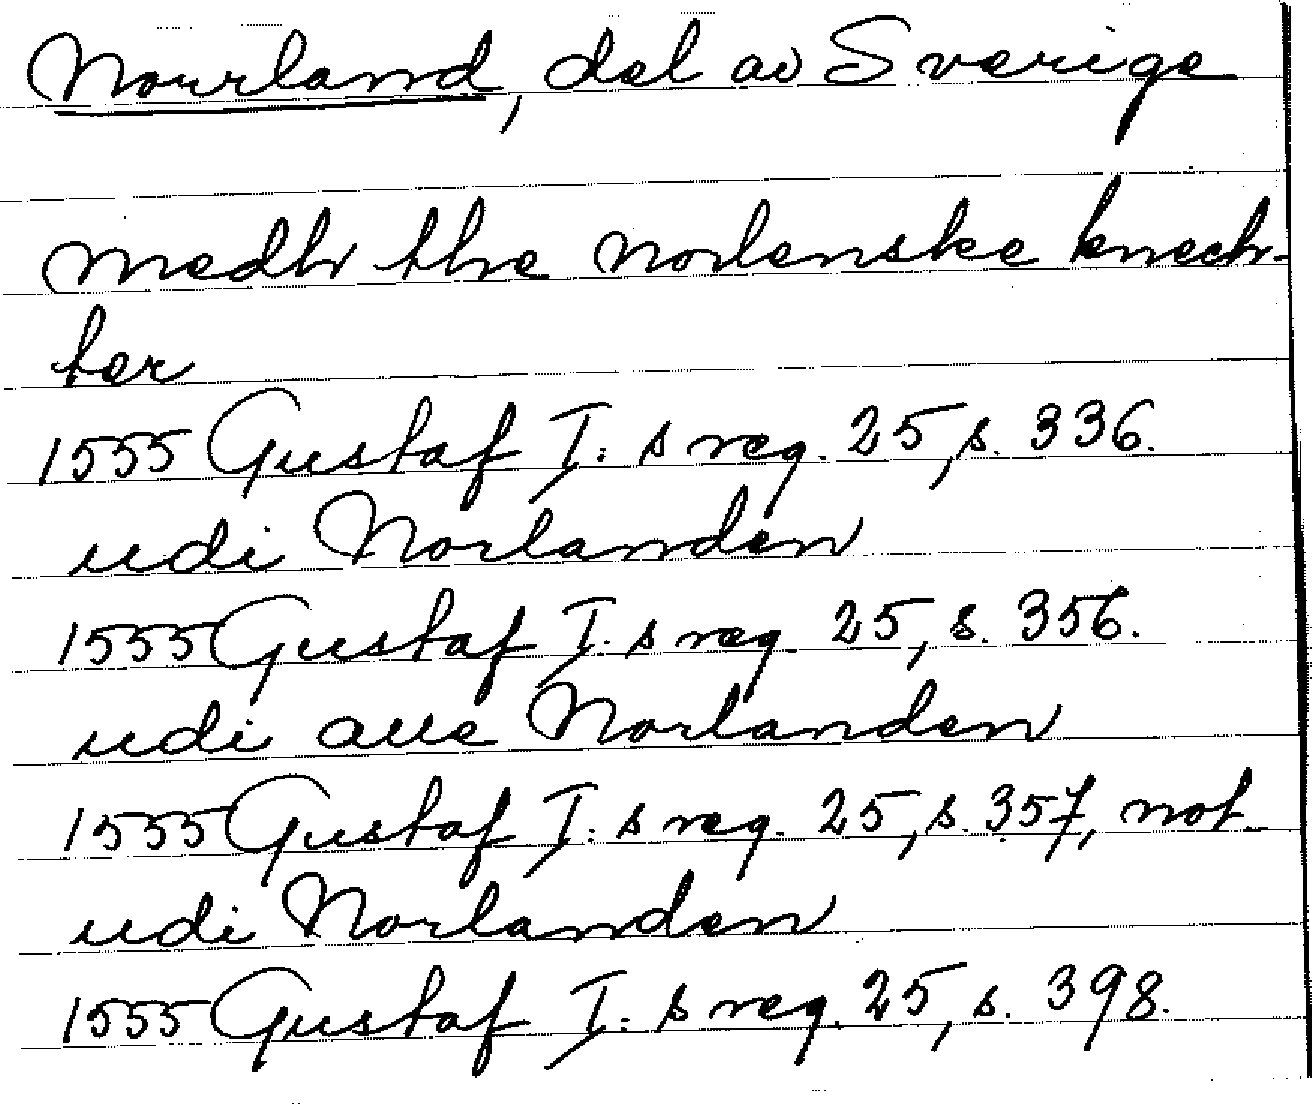 Norrland, del av Sverige
medh the norlenske knech-
ter
1555 Gustaf I:s reg. 25, s. 336.
udi Norlanden
1555 Gustaf I:s reg. 25, s. 356.
udi alle Norlanden
1555 Gustaf I:s reg. 25, s. 357, not
udi Norlanden
1555 Gustaf I:s reg. 25, s. 398.